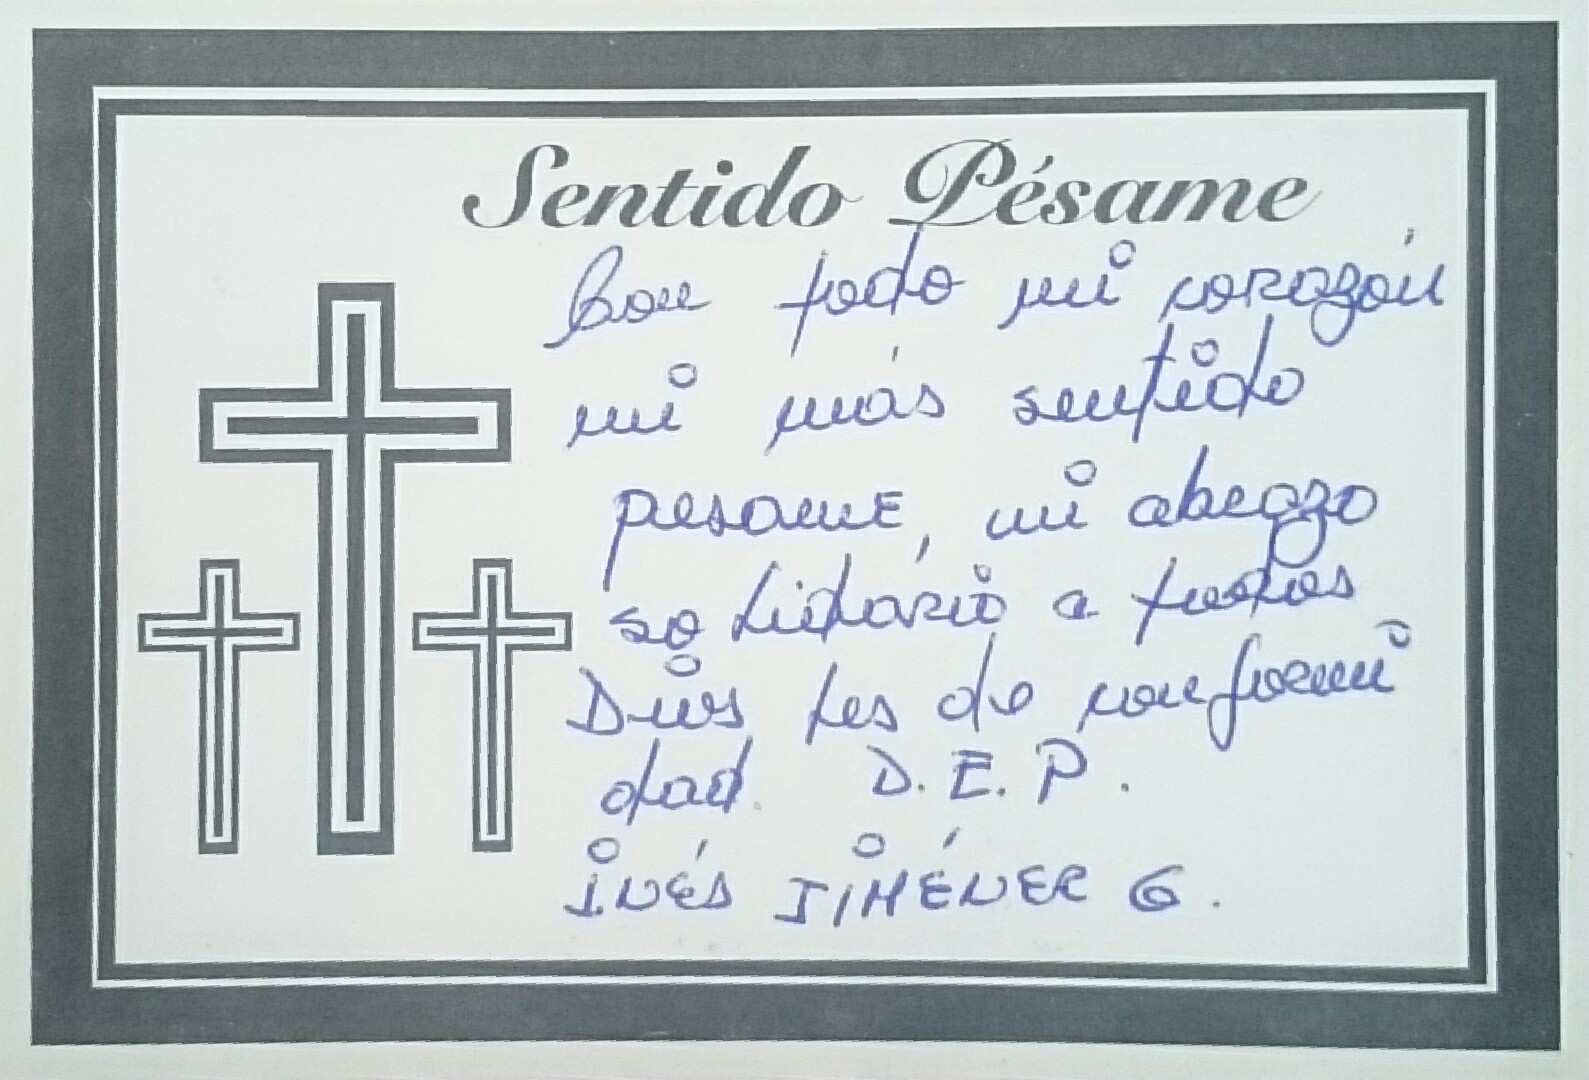 Sentido Pésame
Con todo mi corazón
mi más sentido
pesame, mi abrazo
solidario a todos
Dios les de conformi
dad. D.E.P.
INÉS JIMÉNEZ G.